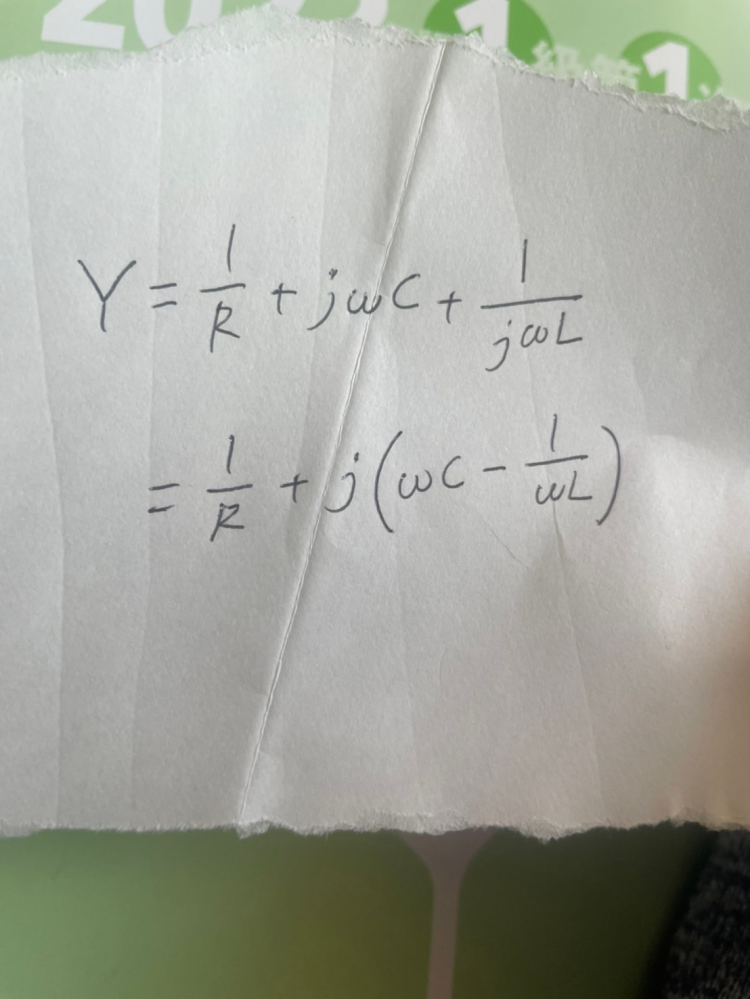 Y = 1/R + jωC + 1/jωL
= 1/R + j(ωC - 1/ωL)